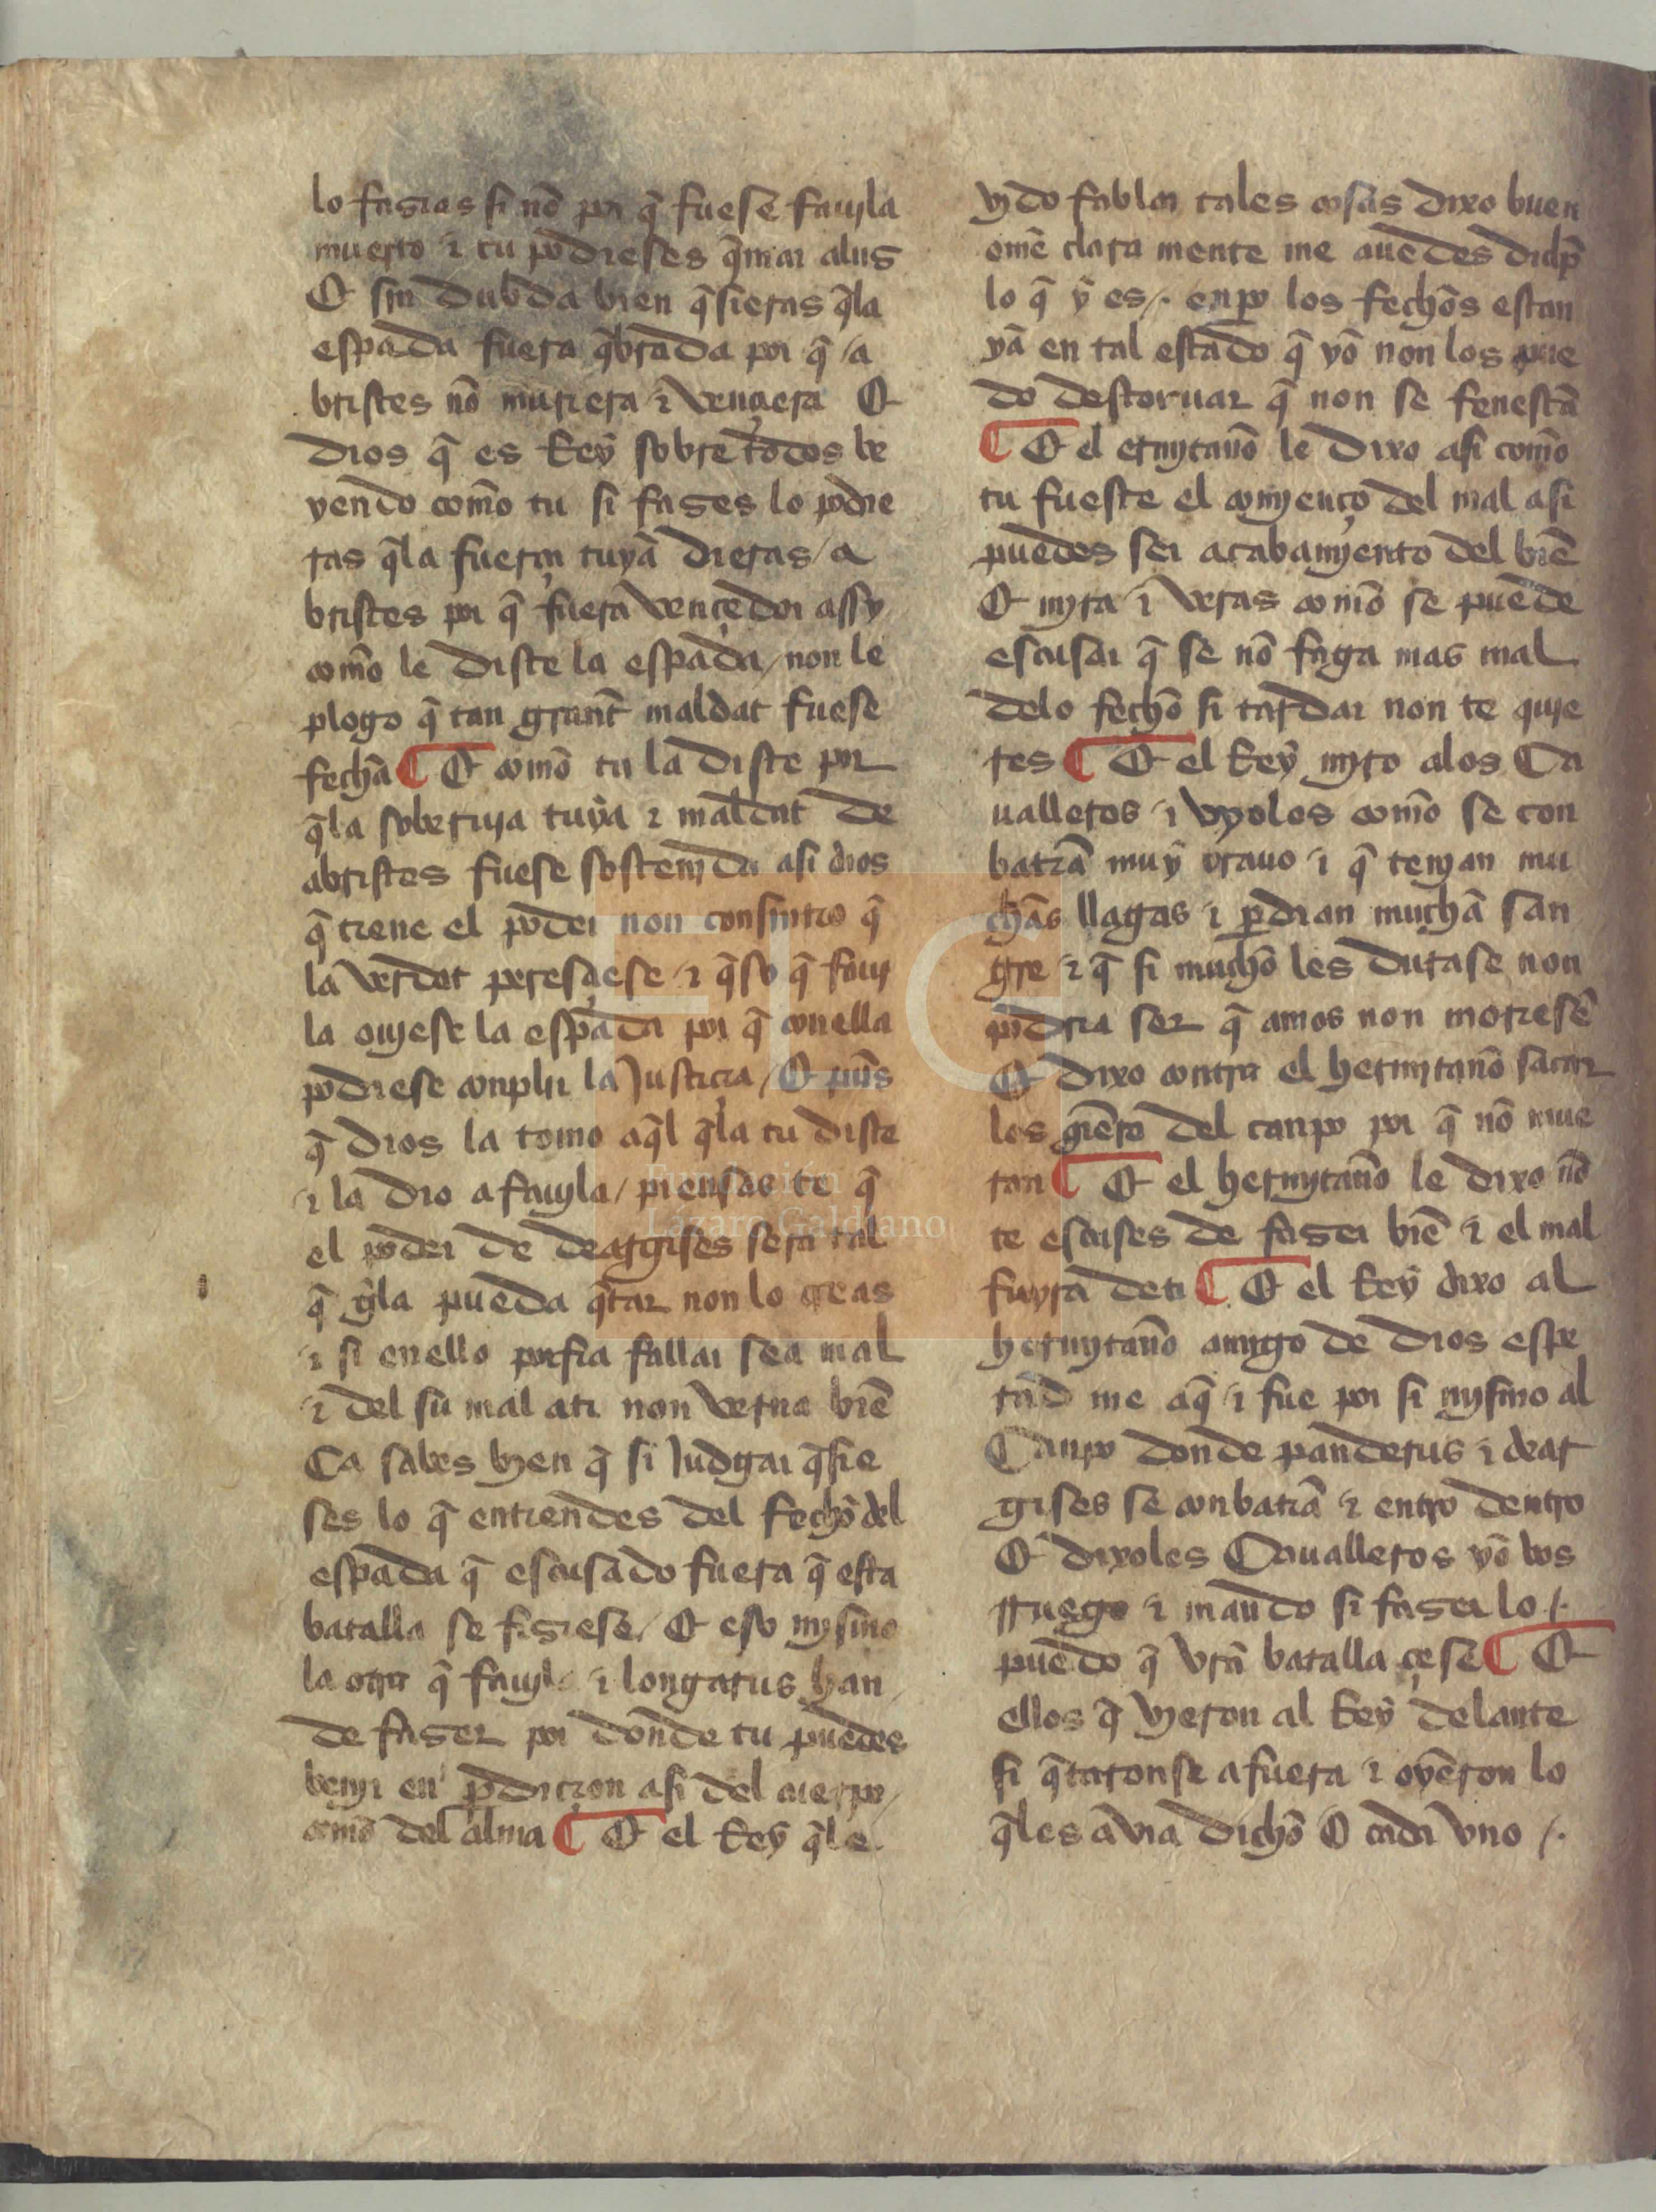 lo fazias si nō por q̄ fuese fauila
muerto ⁊ tu podieses q̄mar alus
E sin dubda bien q̄sieras q̄la
espada fuera q̄brada por q̄ / a
bristes nō muriera ⁊ vençera E
dios q̄ es Rey sobre todos be
yendo como tu si fazes lo podie
ras q̄la fuerça tuya dieras / a
bristes por q̄ fuera vençedor assy
como le diste la espada / non le
plogo q̄ tan grant maldat fuese
fecha ¶ E como tu la diste por
q̄la soberuia tuya ⁊ maldat de
abristes fuese sostenida asi dios
q̄ tiene el poder non consintio q̄
la verdat peresçese ⁊ q̄so q̄ faui
la ouiese la espada por q̄ conella
podiese conplir la Justicia / E pues
q̄ dios la tomo aq̄l q̄la tu diste
⁊ la dio a fauila / piensas te q̄
el poder de deargises sera tal
q̄ gela pueda q̄tar non lo creas
⁊ si enello porfia fallar sea mal
⁊ del su mal ati non verna biē
Ca sabes bien q̄ si Judgar q̄sie
ses lo q̄ entiendes del fecho del
espada q̄ escusado fuera q̄ esta
batalla se fiziese / E eso mysmo
la otra q̄ fauila ⁊ longarus han
de fazer por donde tu puedes
benir en p̄dicion asi del cuerpo /
como del alma ¶ E el Rey q̄le
vido fablar tales cosas dixo buen
ome clara mente me auedes
lo q̄ y es /. enpo los fechos estan
ya en tal estado q̄ yo non los pue
do destoruar q̄ non se fenesca
¶ E el ermytaño le dixo asi como
tu fueste el comienço del mal asi
puedes ser acabamyento del biē
E myra ⁊ veras como se puede
escusar q̄ se nō faga mas mal
delo fecho si tardar non te quie
res ¶ E el Rey myro alos Ca
ualleros ⁊ vyolos como se con
batiā muy brauo ⁊ q̄ tenian mu
chas llagas ⁊ p̄dian mucha san
gre ⁊ q̄ si mucho les durase non
podria ser q̄ amos non moriesē
E dixo contra el hermytaño sacar
los quiero del canpo por q̄ nō mue
ran ¶ E el hermytaño le dixo nō
te escuses de fazer biē ⁊ el mal
fuyra deti ¶ E el Rey dixo al
hermytaño amygo de dios espe
rad me aq̄ ⁊ fue por si mysmo al
Canpo donde panderus ⁊ dear
gises se conbatiā ⁊ entro dentro
E dixoles Caualleros yo vos
rruego ⁊ mando si fazer lo /.
puedo q̄ vr̄a batalla çese ¶ E
ellos q̄ vieron al Rey delante
si q̄taronse afuera ⁊ oyeron lo
q̄les avia dicho E cada vno /.
Fundación
Lázaro Galdiano